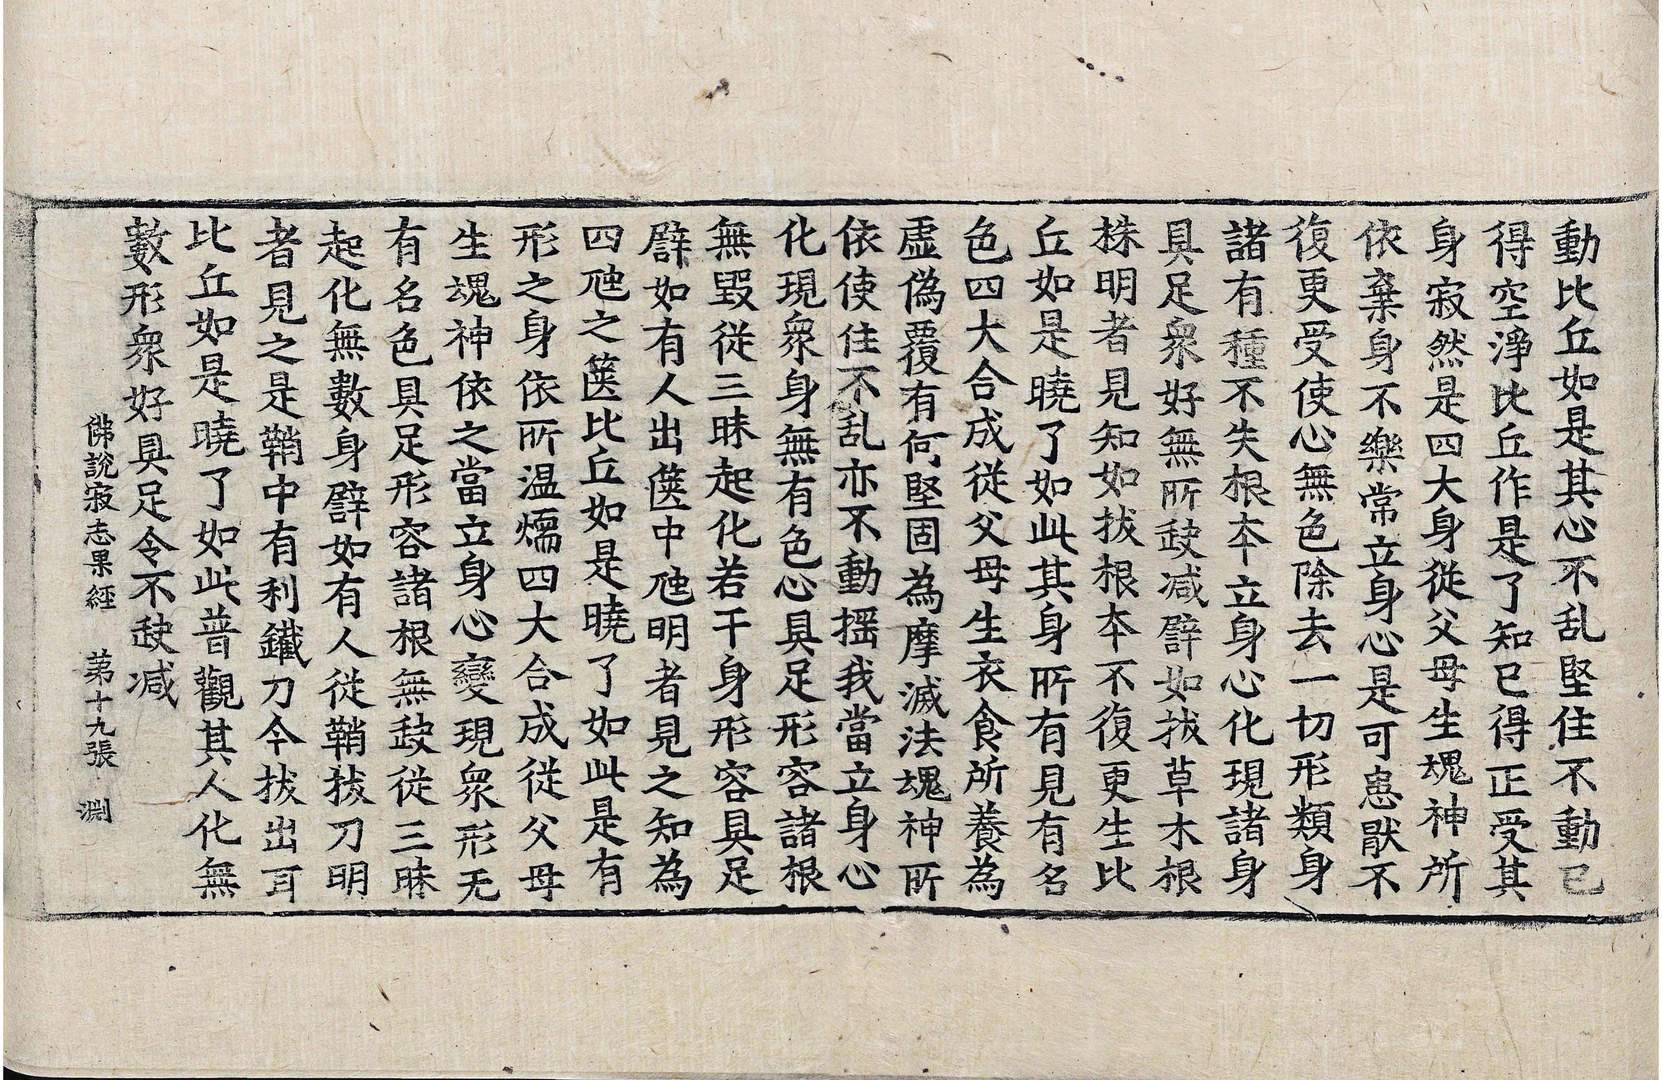 動比丘如是其心不乱堅住不動已
得空淨比丘作是了知已得正受其
身寂然是四大身従父母生魂神所
依棄身不樂常立身心是可患猒不
復更受使心無色除去一切形類身
諸有種不失根夲立身心化現諸身
具足衆好無所𡙇减譬如拔草木根
株明者見知如拔根夲不復更生比
丘如是曉了如此其身所有見有名
色四大合成従父母生衣食所養為
虛偽覆有何堅固為摩滅法魂神所
依使住不乱亦不動揺我當立身心
化現衆身無有色心具足形容諸根
無毀従三昧起化若干身形容具足
譬如有人出篋中虵明者見之知為
四虵之篋比丘如是曉了如此是有
形之身依所温燸四大合成従父母
生魂神依之當立身心變現衆形无
有名色具足形容諸根無𡙇従三昧
起化無數身譬如有人従鞘拔刀明
者見之是鞘中有利鐵刀今拔出耳
比丘如是曉了如此普觀其人化無
數形衆好具足令不𡙇减
佛說寂志果經 第十九張 淵